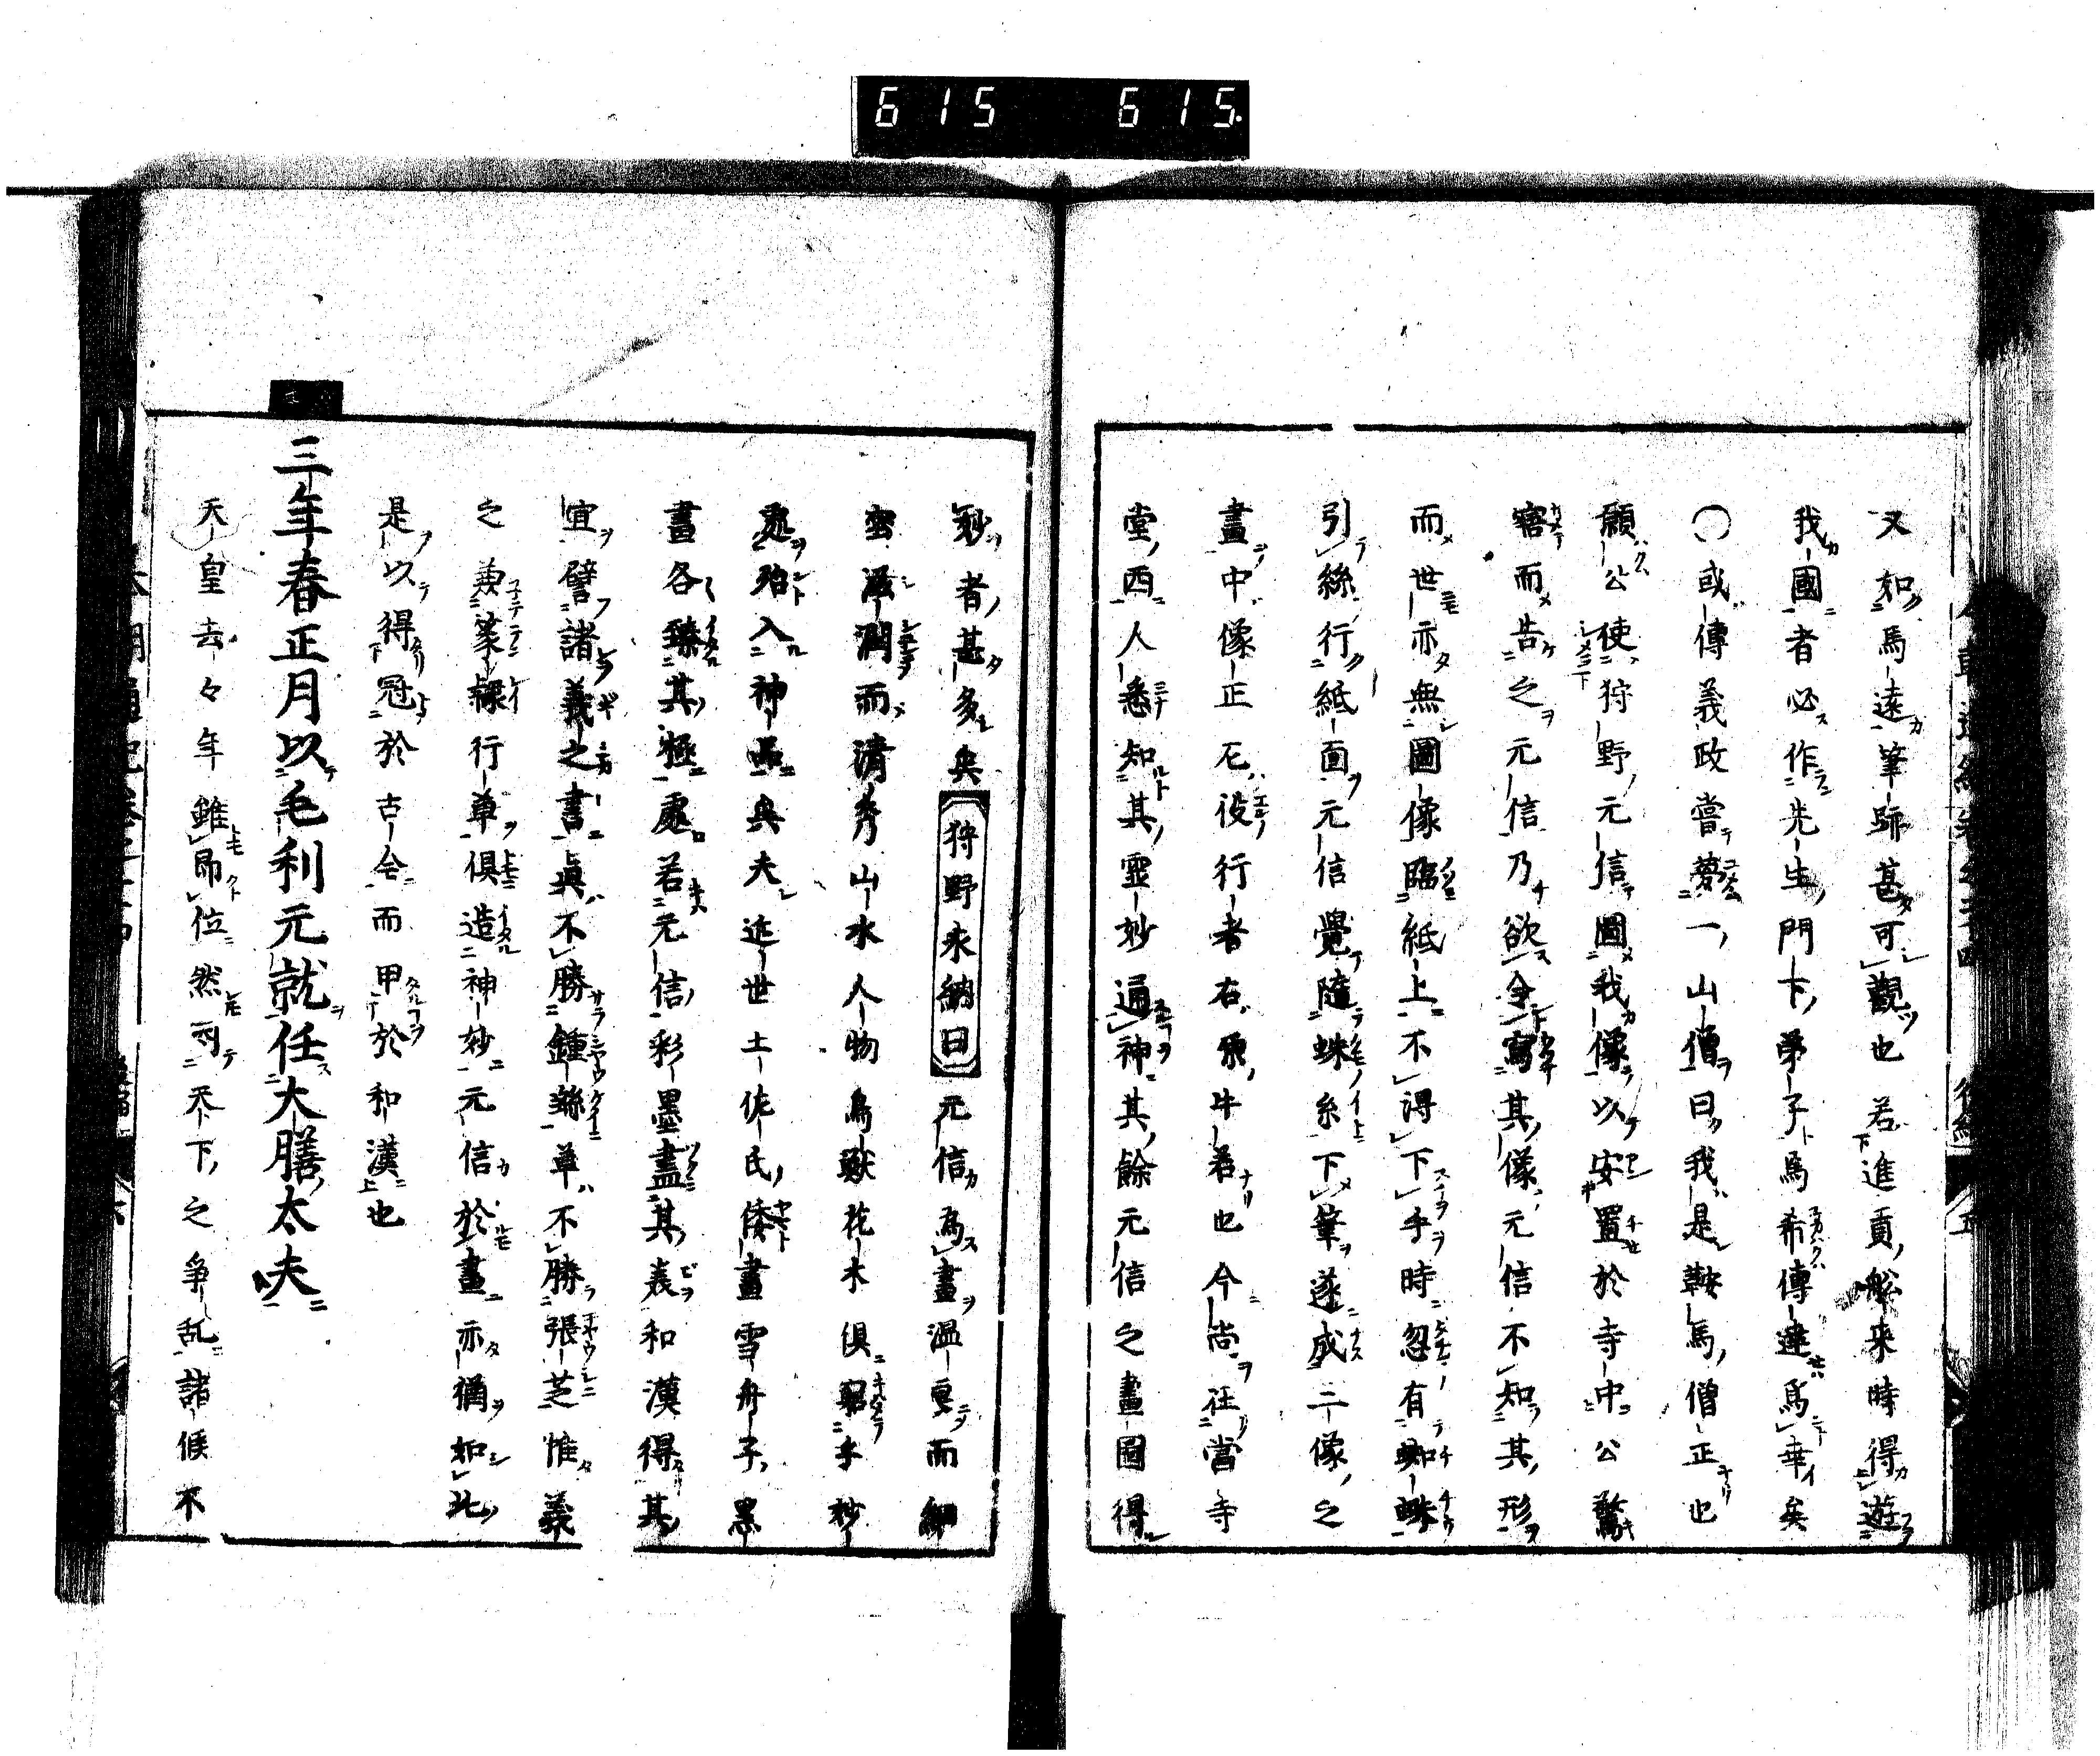 615 615
又如馬遠筆跡甚可觀也若進貢船来時得遊
我國者必作先生門下弟子馬希傳達馬華矣
〇或傳義政嘗夢一山僧曰我是鞍馬僧正也
願公使狩野元信圖我像以安置於寺中公驚
寤而告之元信乃欲命寫其像元信不知其形
而世亦無圖像臨紙上不得下手時忽有蜘蛛
引絲行紙面元信覺隨蛛糸下筆遂成二像之
畫中像正尾役行者右乘牛若也今尚在當寺
堂西人悉知其靈妙通神其餘元信之畫圖得
妙者甚多矣狩野永納曰元信為畫温厚而細
密滋潤而清秀山水人物鳥獸花木俱窮乎妙
處殆入神品矣夫近世土佐氏倭畫雪舟子墨
畫各臻其極處若元信彩墨盡其義和漢得其
宜譬諸義之書真不勝鍾繇草不勝張芝惟義
之兼篆隸行草俱造神妙元信於畫亦猶如此
是以得冠於古今而甲於和漢也
三年春正月以毛利元就任大膳太夫
天皇去々年雖即位然而天下之争乱諸侯不